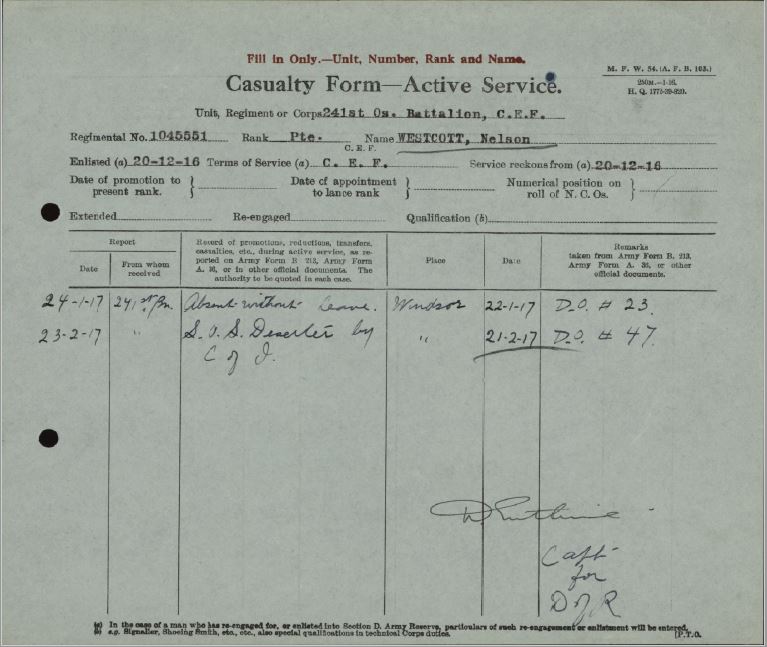 Fill in Only.—Unit, Number, Rank and Name.
M. F. W. 54. (A. F. B. 103.)
250M.—1-16.
H. Q. 1772-39-920.
Casualty Form—Active Service.
Unit, Regiment or Corps 241st Os. Battalion, C.E.F.
Regimental No. 1045551 Rank Pte. Name WESTCOTT, Nelson
C. E. F.
Enlisted (a) 20-12-16 Terms of Service (a) C. E. F. Service reckons from (a) 20-12-16
Date of promotion to present rank. } Date of appointment to lance rank } Numerical position on roll of N. C. Os. }
Extended Re-engaged Qualification (b)
Report
Date
From whom received
Record of promotions, reductions, transfers,
casualties, etc., during active service, as re-
ported on Army Form B 213, Army Form
A. 36, or in other official documents. The
authority to be quoted in each case.
Place
Date
Remarks
taken from Army Form B. 213,
Army Form A. 36, or other
official documents.
24-1-17 241st Bn. Absent without leave. Windsor 22-1-17 D.O. # 23.
23-2-17 " S.O.S. Deserter by " 21-2-17 D.O. # 47.
C of I.
Capt
for
D of R
(a) In the case of a man who has re-engaged for, or enlisted into Section D. Army Reserve, particulars of such re-engagement or enlistment will be entered.
(b) e.g. Signaller, Shoeing Smith, etc., etc., also special qualifications in technical Corps duties.
[P.T.O.